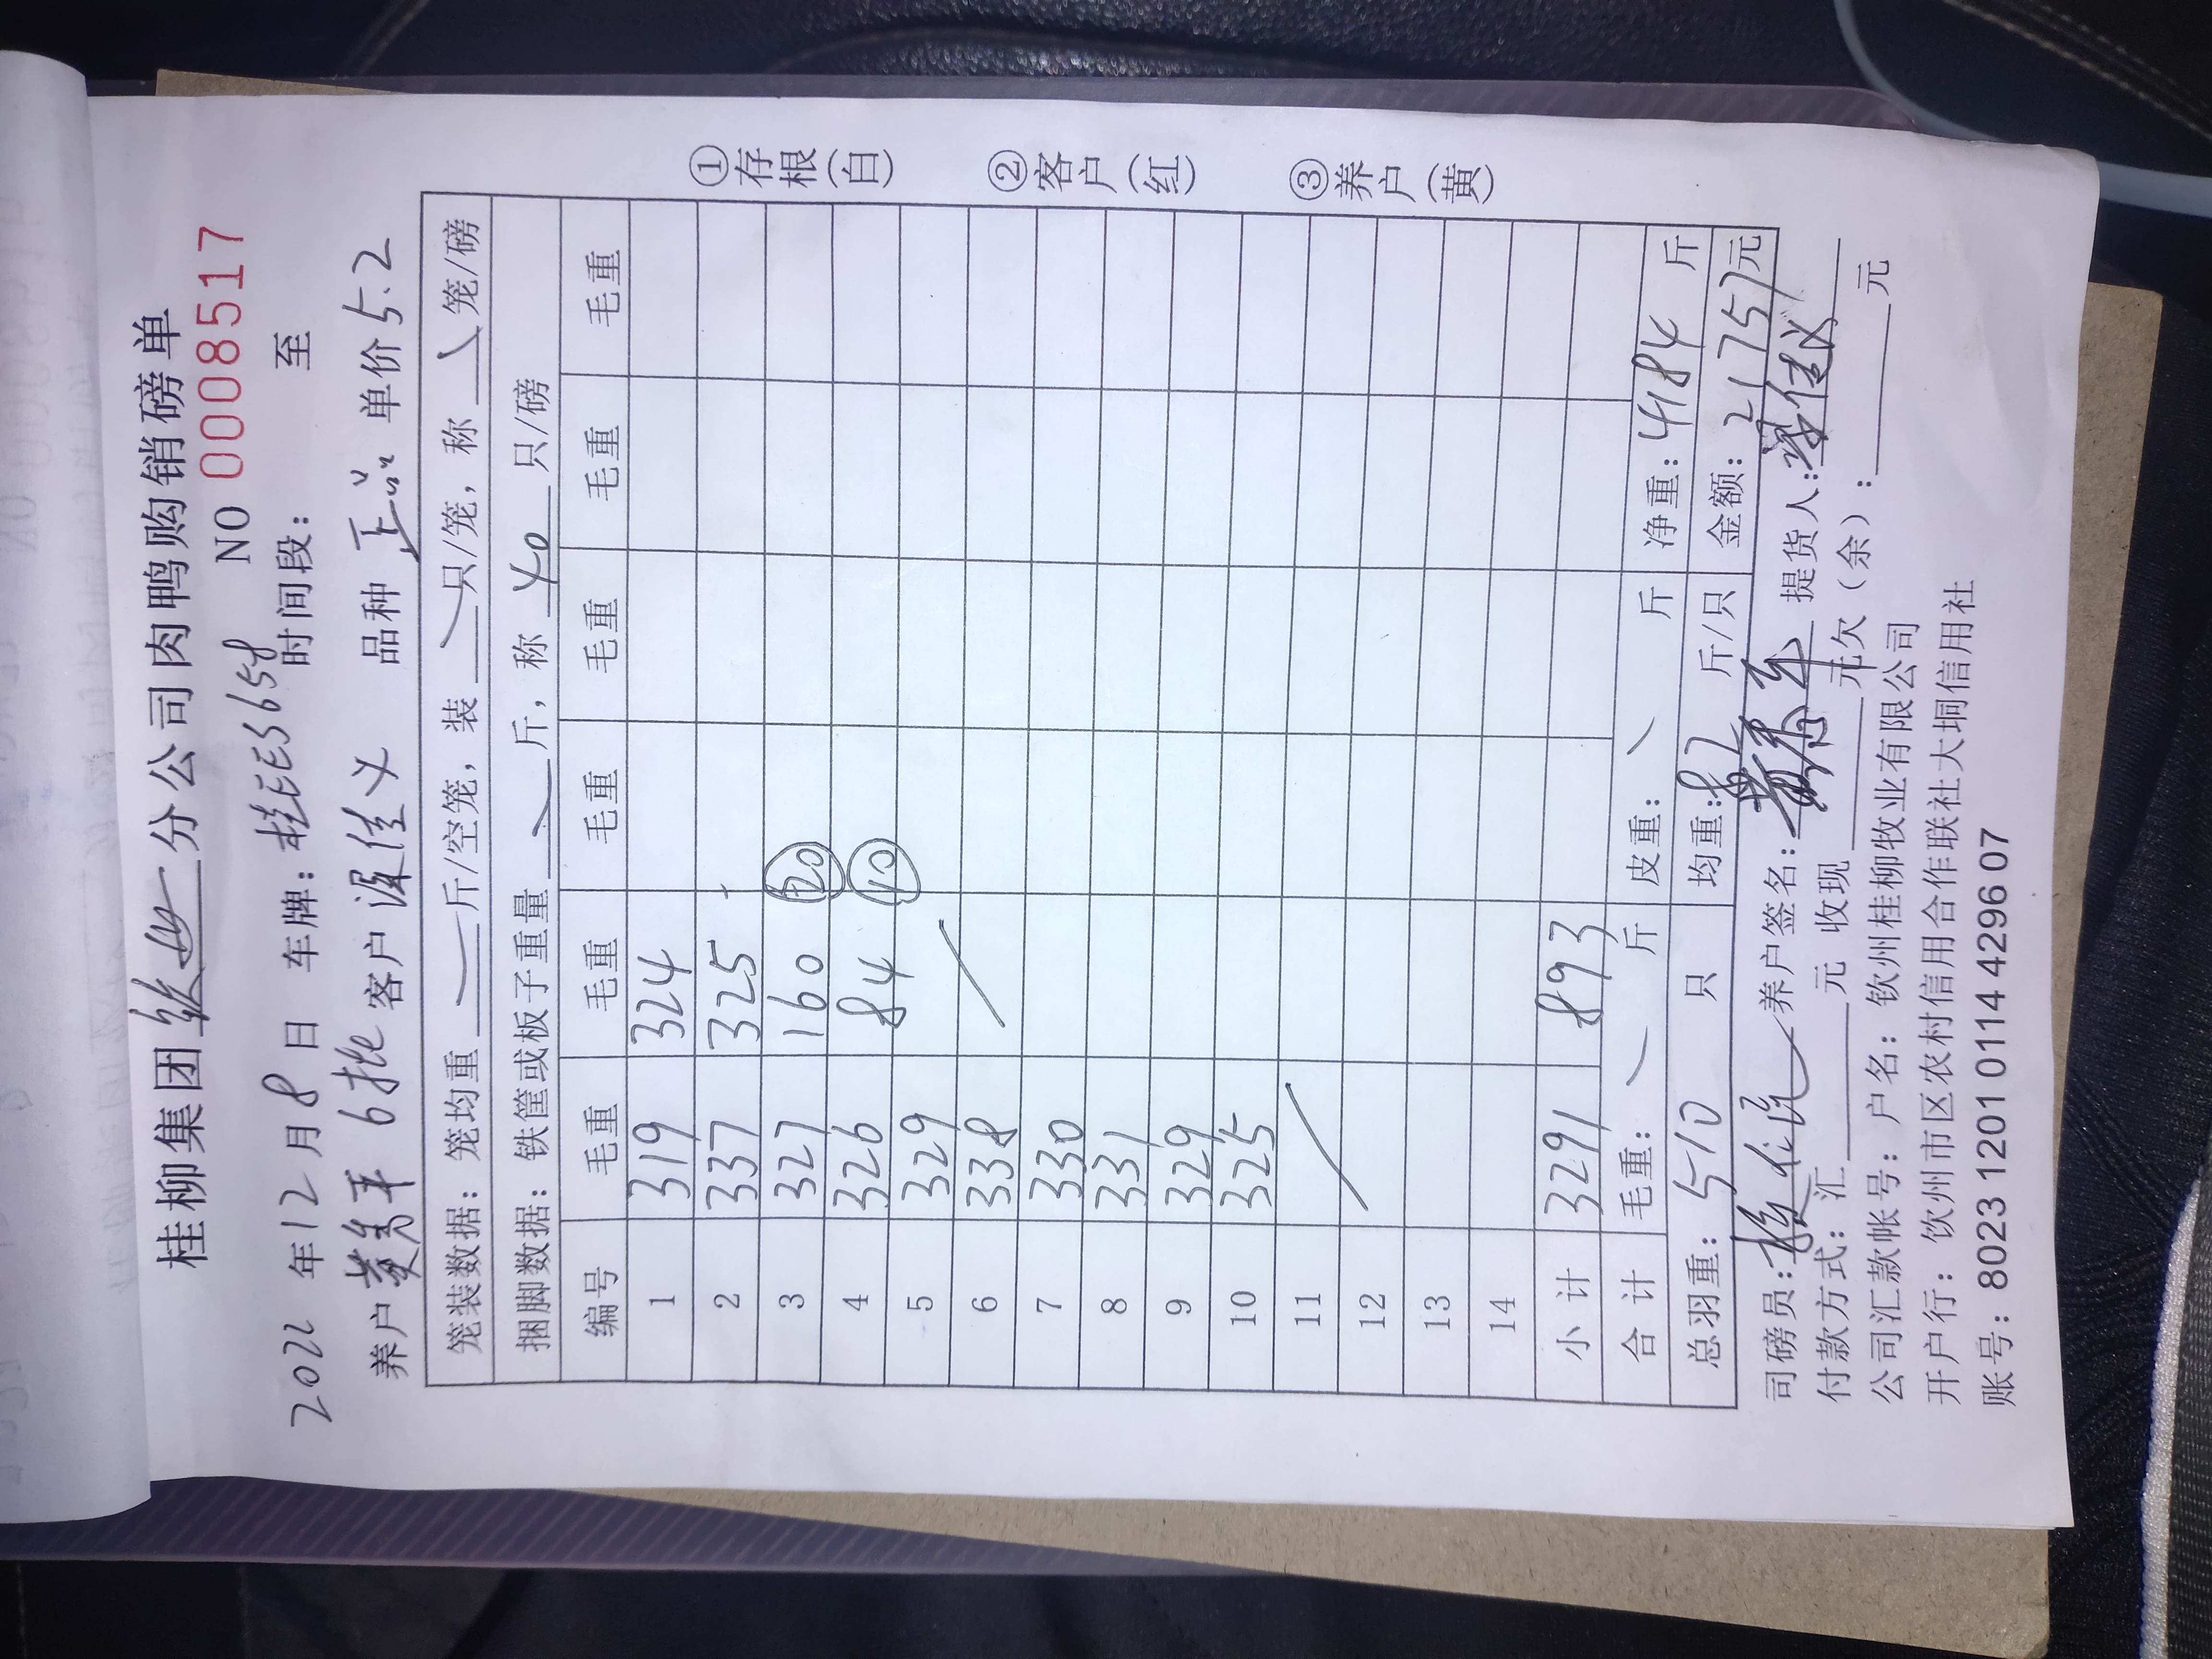 桂柳集团 牧业 分公司肉鸭购销磅单
NO 0008517
2022 年 12 月 8 日 车牌: 桂EES658 时间段: 至
养户 6批 客户 佳义 品种 正品 单价 5.2
笼装数据: 笼均重 斤/空笼, 装 只/笼, 称 笼/磅
捆脚数据: 铁筐或板子重量 斤, 称 40 只/磅
编号 毛重 毛重 毛重 毛重 毛重 毛重
1 319 324
2 337 325
3 327 160 20
4 326 84 10
5 329
6 338
7 330
8 331
9 329
10 325
11
12
13
14
小计 3291 893
合计 毛重: 斤 皮重: 斤 净重: 4184 斤
总羽重: 510 只 均重: 8.2 斤/只 金额: 21757 元
司磅员: 养户签名: 提货人: 佳义
付款方式: 汇 元 收现 元欠(余): 元
公司汇款帐号: 户名: 钦州桂柳牧业有限公司
开户行: 钦州市区农村信用合作联社大垌信用社
账号: 8023 1201 0114 4296 07
①存根(白)
②客户(红)
③养户(黄)